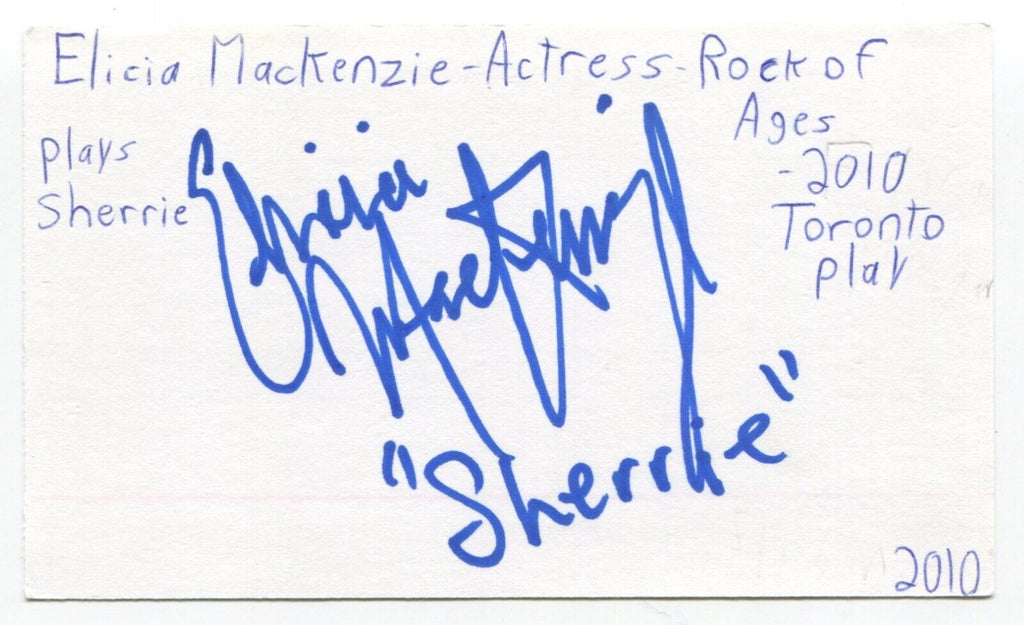 Elicia Mackenzie-Actress-Rock of
Ages
plays
Sherrie
-2010
Toronto
play
Elicia Mackenzie
"Sherrie"
2010